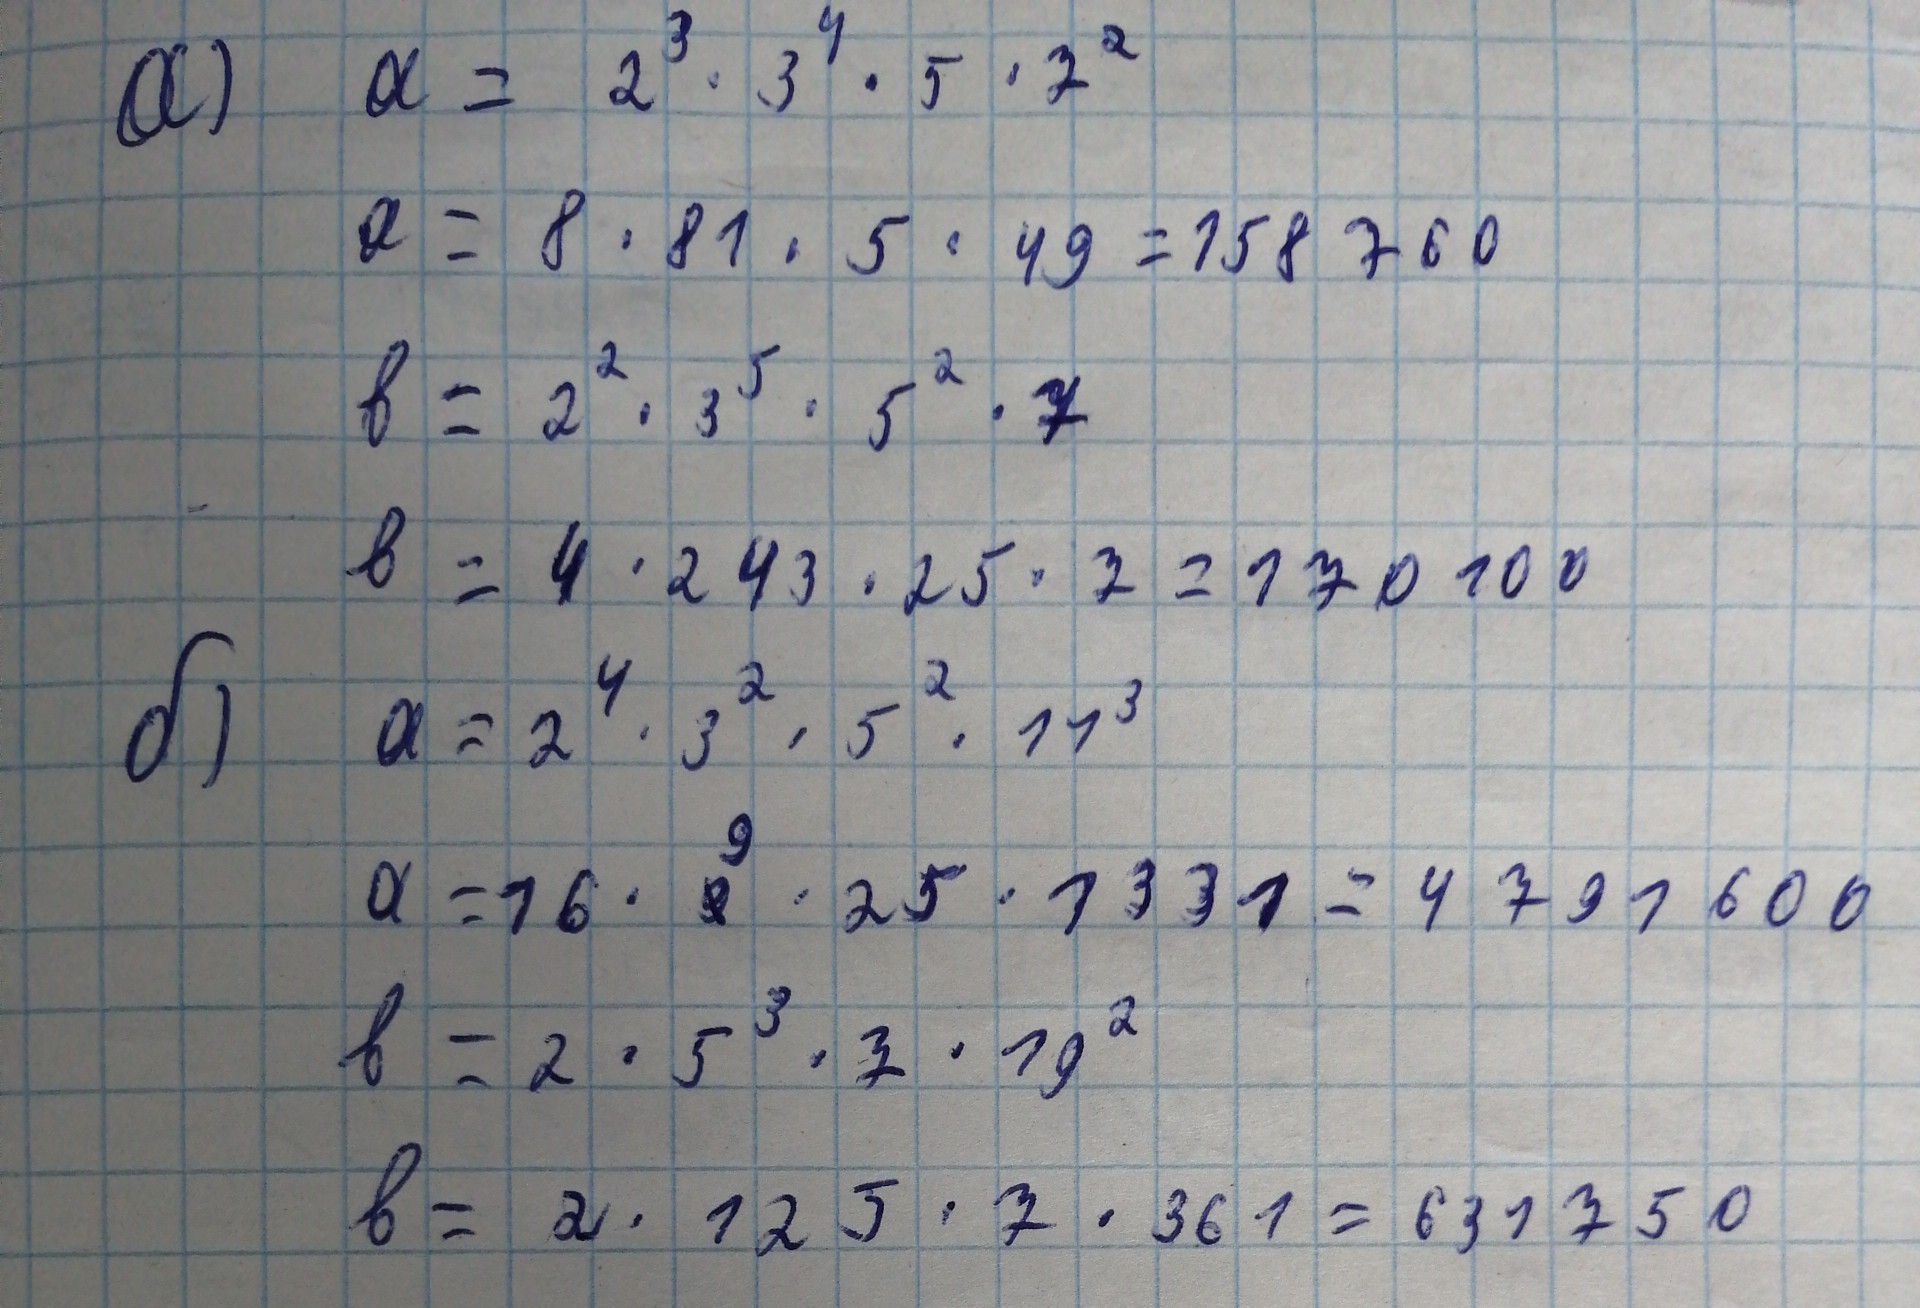 а) a = 2³ · 3⁴ · 5 · 7²
a = 8 · 81 · 5 · 49 = 158 760
b = 2² · 3⁵ · 5² · 7
b = 4 · 243 · 25 · 7 = 170 100
б) a = 2⁴ · 3² · 5² · 11³
a = 16 · 9 · 25 · 1331 = 4 791 600
b = 2 · 5³ · 7 · 19²
b = 2 · 125 · 7 · 361 = 631 750